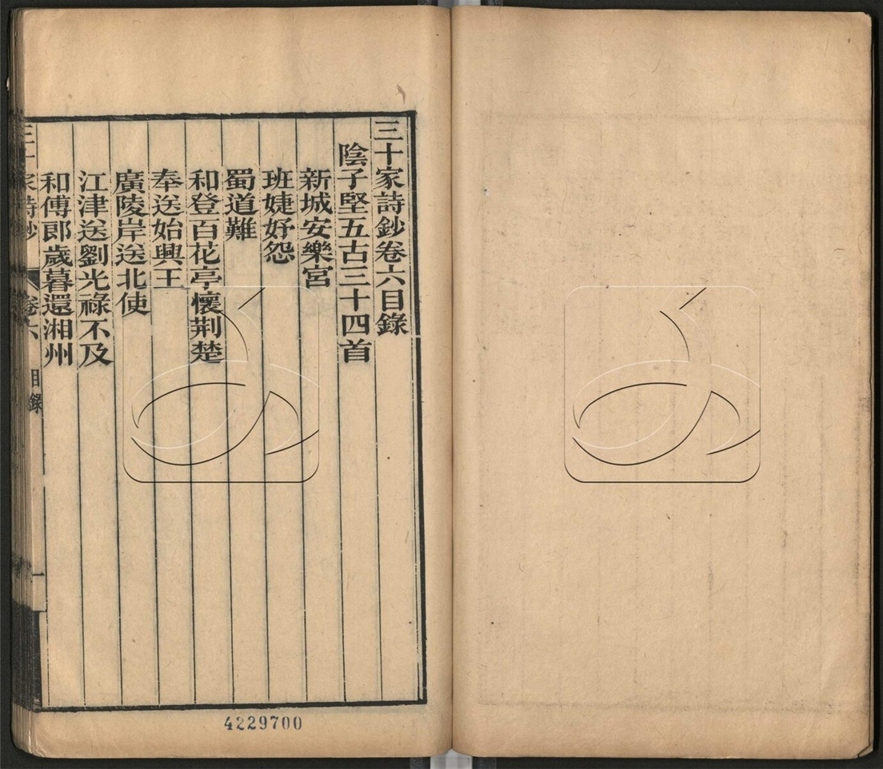 三十家詩鈔卷六目錄
陰子堅五古三十四首
新城安樂宮
班婕妤怨
蜀道難
和登百花亭懷荆楚
奉送始興王
廣陵岸送北使
江津送劉光祿不及
和傅郎歲暮還湘州
三十家詩鈔
卷六
目錄
一
4229700